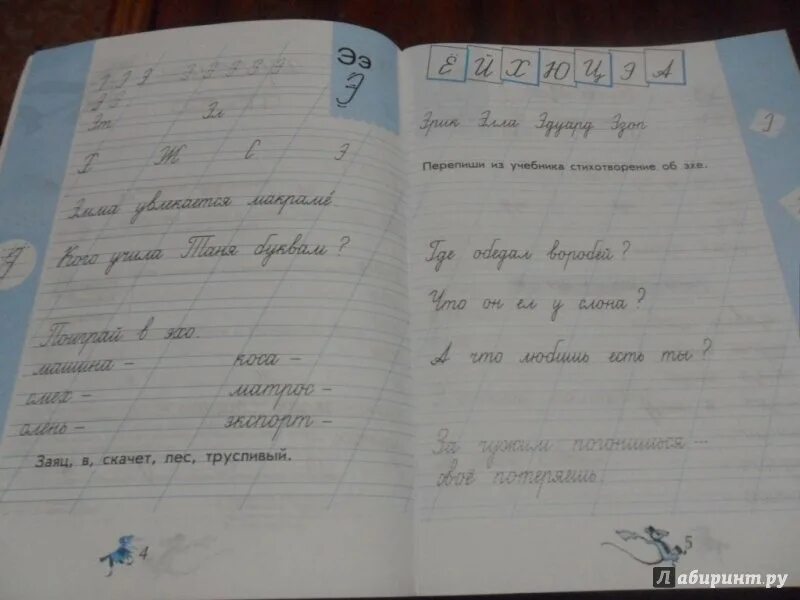 Ээ
Э
Э Э Э Э Э Э Э Э
Э Э
Эт Эл
Х Ж С Э
Эмма увлекается макраме.
Кого учила Таня буквам?
Поиграй в эхо.
машина – коса –
смех – матрос –
олень – экспорт –
Заяц, в, скачет, лес, трусливый.
4
Ё Й Х Ю Ц Э А
Эрик Элла Эдуард Эзоп
Перепиши из учебника стихотворение об эхе.
Где обедал воробей?
Что он ел у слона?
А что любишь есть ты?
За чужим погонишься –
своё потеряешь.
5
Лабиринт.ру